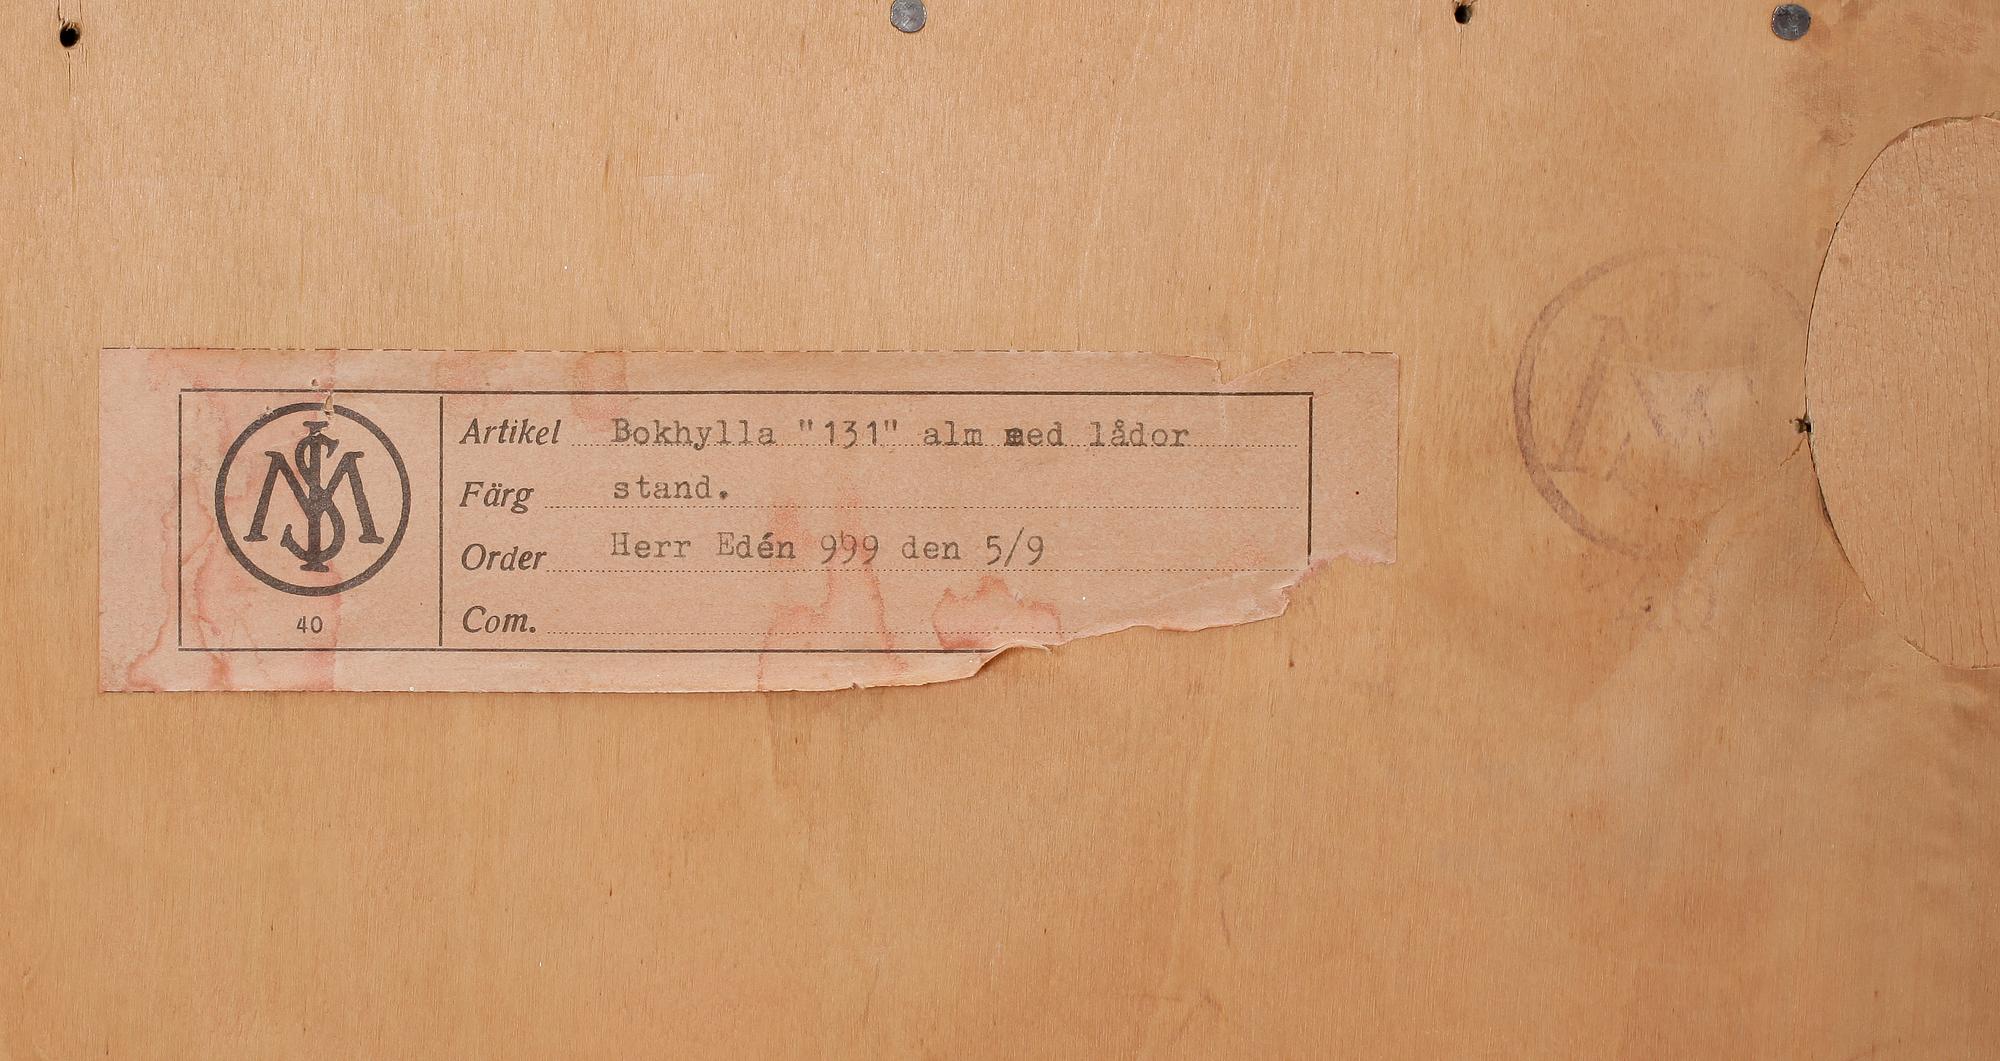 SIM
40
Artikel Bokhylla "131" alm med lådor
Färg stand.
Order Herr Edén 999 den 5/9
Com.